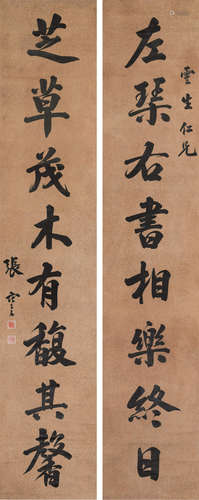 雲生仁兄
左琴右書相樂終日
芝草茂木有馥其馨
張謇